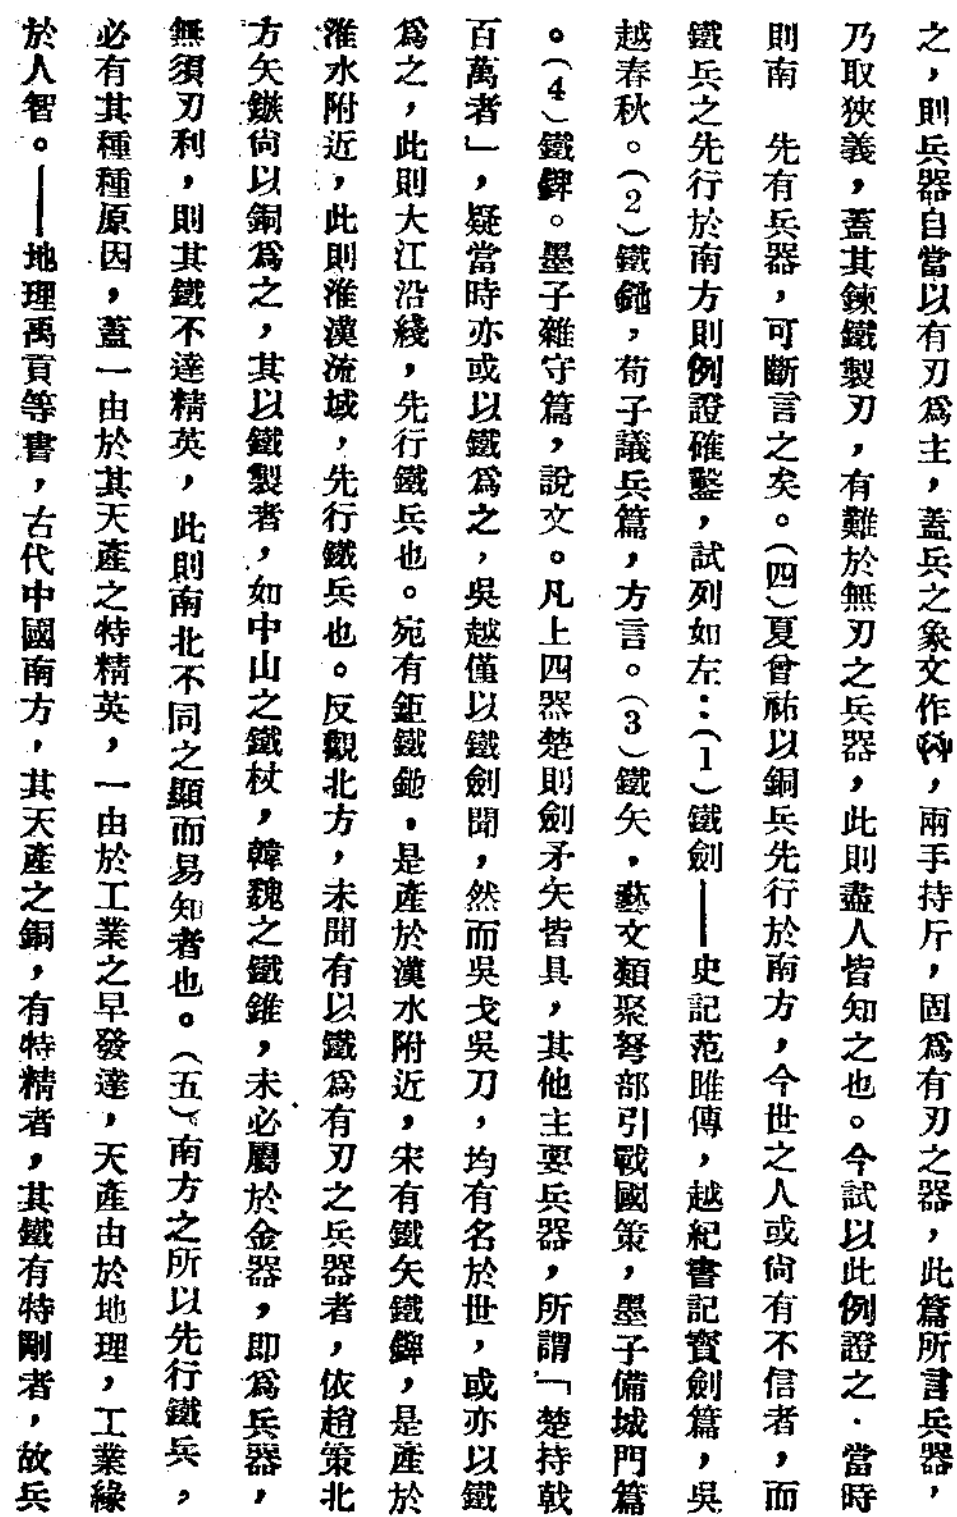 之，則兵器自當以有刃爲主，蓋兵之象文作，兩手持斤，固爲有刃之器，此篇所言兵器，
乃取狹義，蓋其鍊鐵製刃，有難於無刃之兵器，此則盡人皆知之也。今試以此例證之．當時
則南　先有兵器，可斷言之矣。（四）夏曾祐以銅兵先行於南方，今世之人或尙有不信者，而
鐵兵之先行於南方則例證確鑿，試列如左：（1）鐵劍——史記范雎傳，越紀書記寳劍篇，吳
越春秋。（2）鐵鉇，荀子議兵篇，方言。（3）鐵矢，藝文類聚弩部引戰國策，墨子備城門篇
。（4）鐵錍。墨子雜守篇，說文。凡上四器楚則劍矛矢皆具，其他主要兵器，所謂「楚持戟
百萬者」，疑當時亦或以鐵爲之，吳越僅以鐵劍聞，然而吳戈吳刀，均有名於世，或亦以鐵
爲之，此則大江沿綫，先行鐵兵也。宛有鉅鐵鉇，是產於漢水附近，宋有鐵矢鐵錍，是產於
淮水附近，此則淮漢流域，先行鐵兵也。反觀北方，未聞有以鐵爲有刃之兵器者，依趙策北
方矢鏃尙以銅爲之，其以鐵製者，如中山之鐵杖，韓魏之鐵錐，未必屬於金器，即爲兵器，
無須刃利，則其鐵不達精英，此則南北不同之顯而易知者也。（五）南方之所以先行鐵兵，
必有其種種原因，蓋一由於其天產之特精英，一由於工業之早發達，天產由於地理，工業緣
於人智。——地理禹貢等書，古代中國南方，其天產之銅，有特精者，其鐵有特剛者，故兵